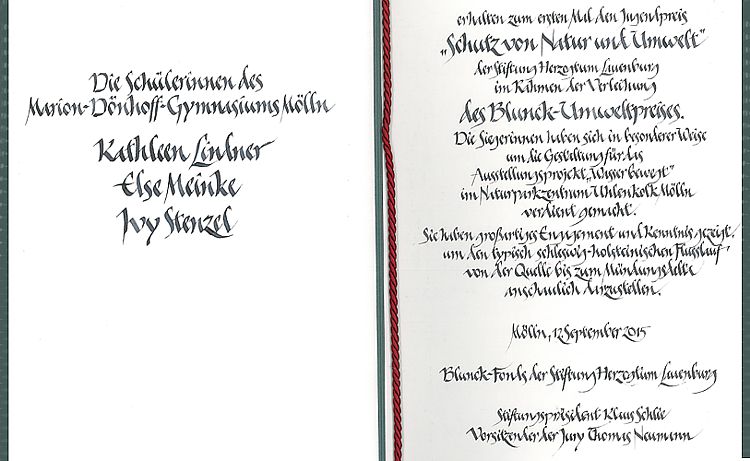 Die Schülerinnen des
Marion-Dönhoff-Gymnasiums Mölln
Kathleen Lindner
Else Meinke
Ivy Stenzel
erhalten zum ersten Mal den Jugendpreis
„Schutz von Natur und Umwelt"
der Stiftung Herzogtum Lauenburg
im Rahmen der Verleihung
des Blunck-Umweltpreises.
Die Siegerinnen haben sich in besonderer Weise
um die Gestaltung für das
Ausstellungsprojekt „Wasser bewegt"
im Naturparkzentrum Uhlenkolk Mölln
verdient gemacht.
Sie haben großartiges Engagement und Kenntnis gezeigt,
um den typisch schleswig-holsteinischen Flusslauf
von der Quelle bis zum Mündungsdelta
anschaulich darzustellen.
Mölln, 12. September 2015
Blunck-Fonds der Stiftung Herzogtum Lauenburg
Stiftungspräsident Klaus Schlie
Vorsitzender der Jury Thomas Neumann